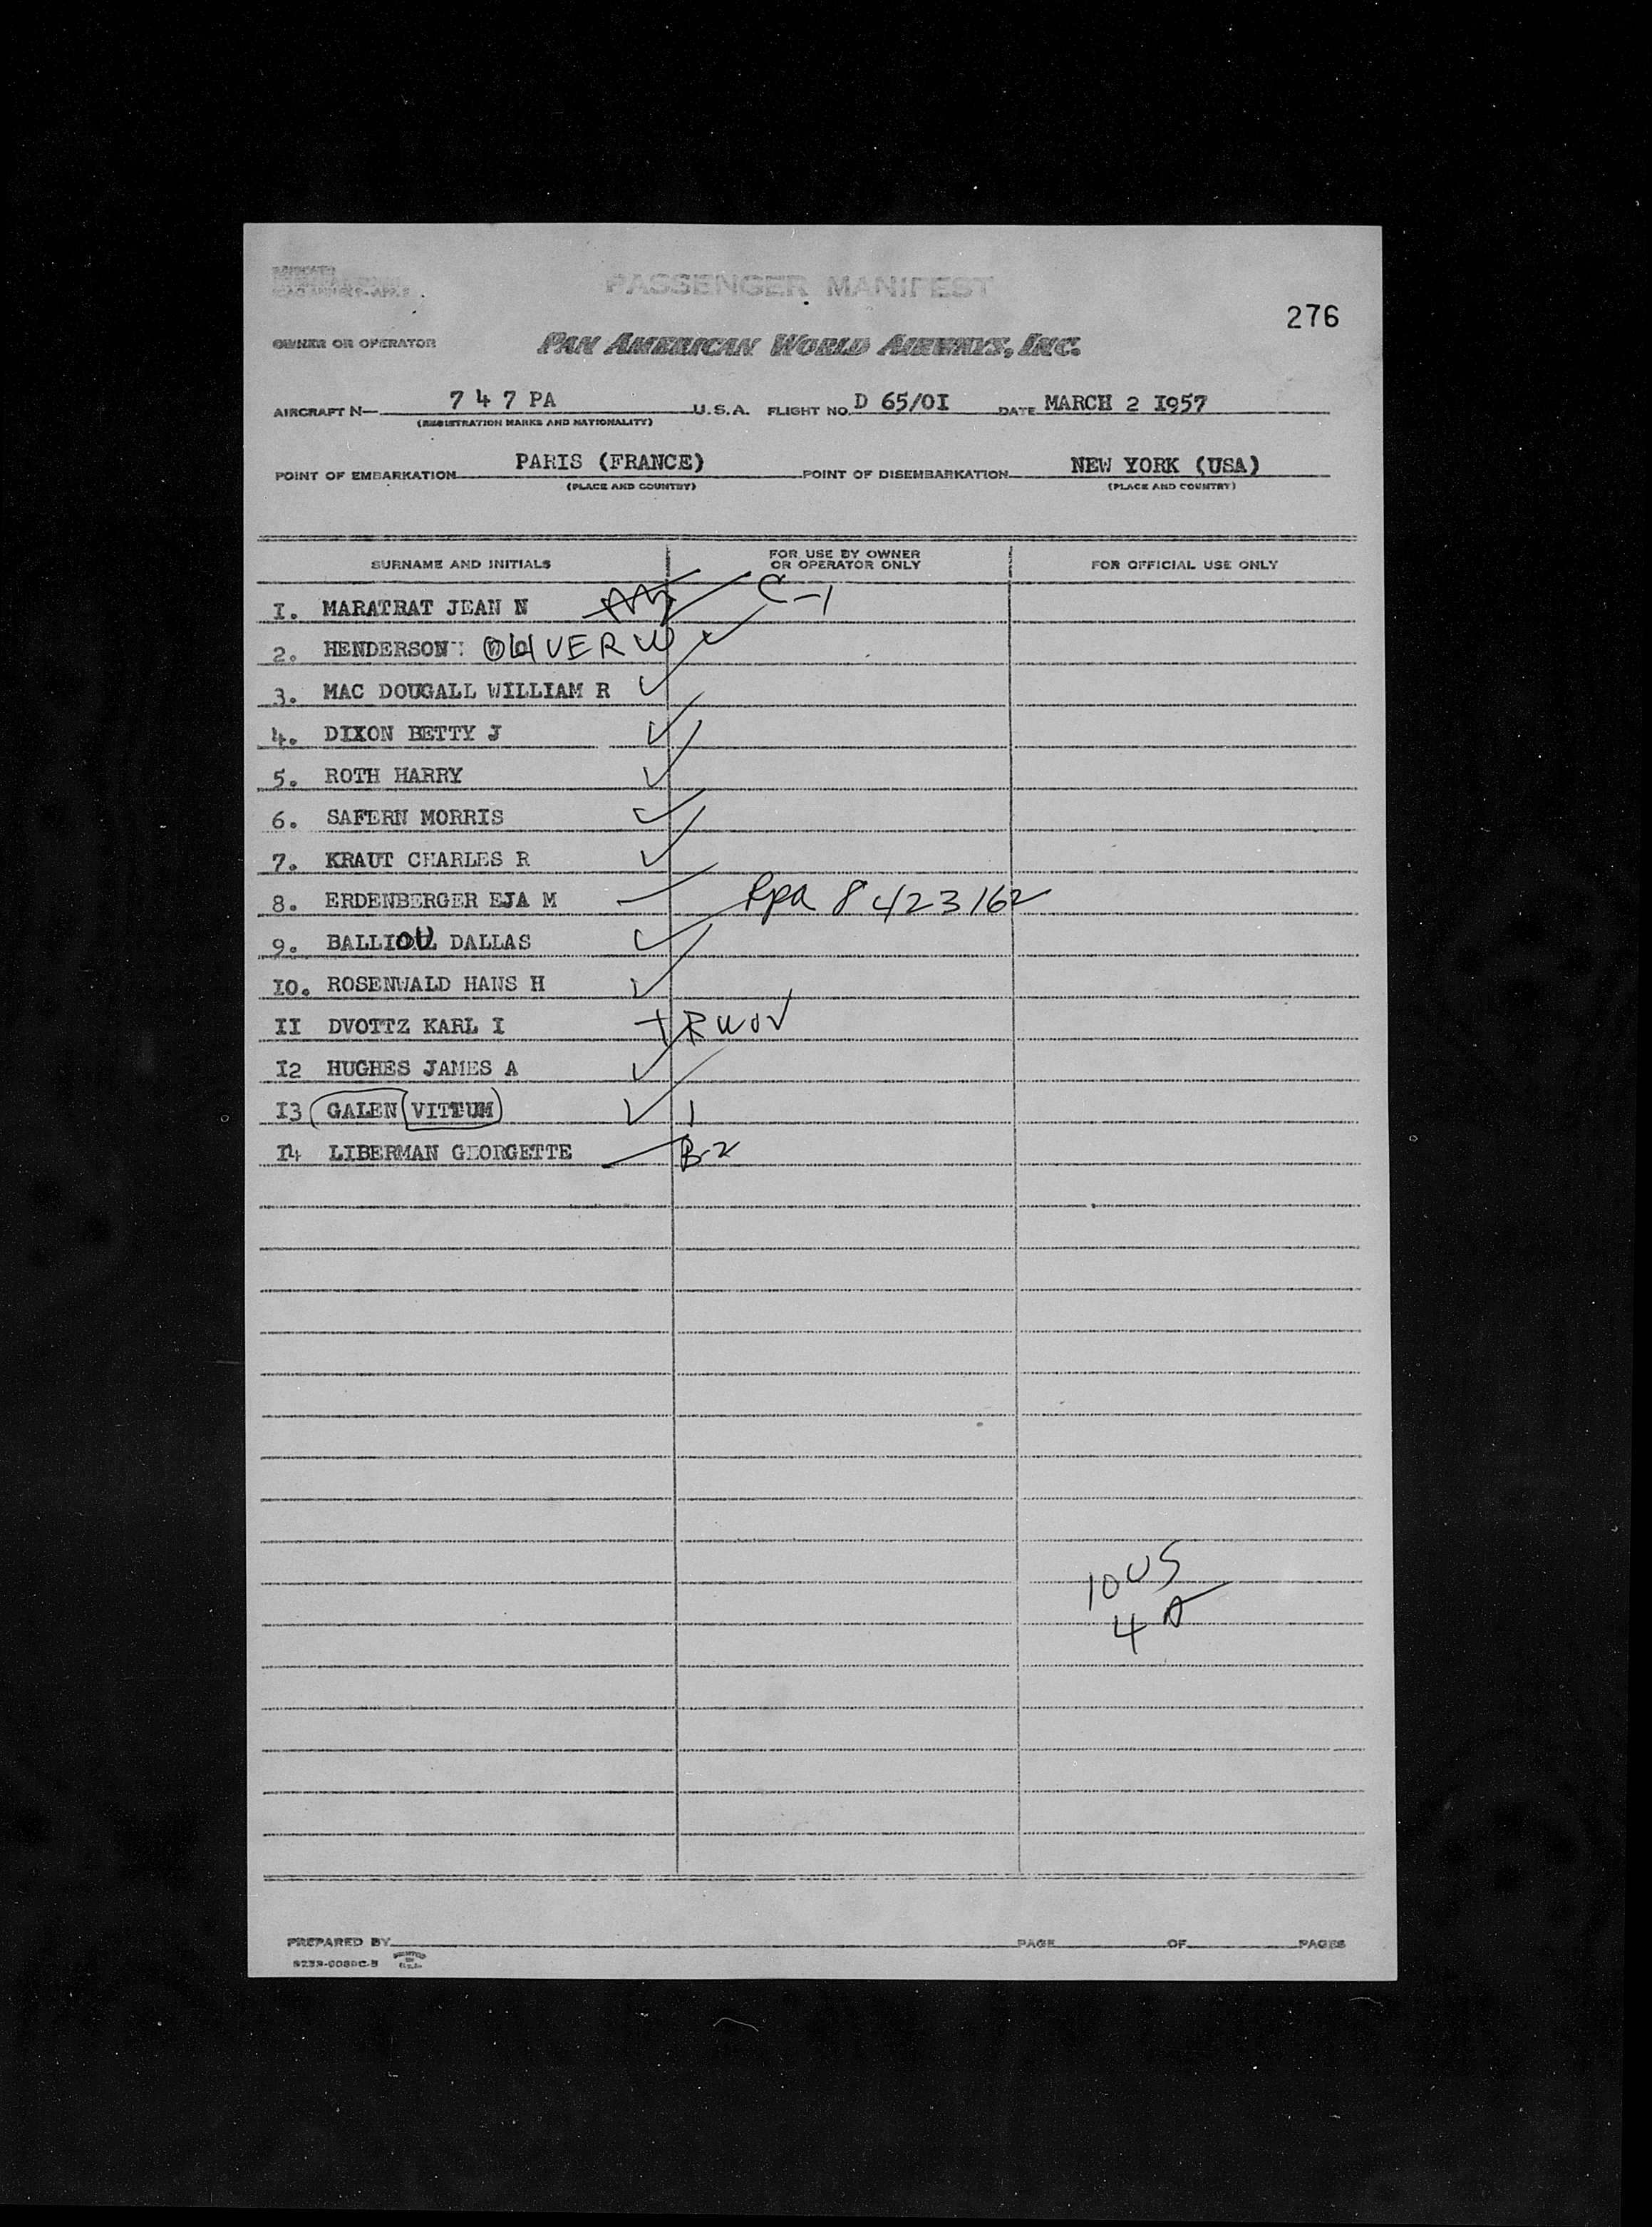 PASSENGER MANIFEST
276
OWNER OR OPERATOR PAN AMERICAN WORLD AIRWAYS, INC.
AIRCRAFT N— 7 4 7 PA U.S.A. FLIGHT NO. D 65/0I DATE MARCH 2 I957
(REGISTRATION MARKS AND NATIONALITY)
POINT OF EMBARKATION PARIS (FRANCE) POINT OF DISEMBARKATION NEW YORK (USA)
(PLACE AND COUNTRY) (PLACE AND COUNTRY)
SURNAME AND INITIALS FOR USE BY OWNER OR OPERATOR ONLY FOR OFFICIAL USE ONLY
I. MARATRAT JEAN N C-1
2. HENDERSON OLIVER W
3. MAC DOUGALL WILLIAM R
4. DIXON BETTY J
5. ROTH HARRY
6. SAFERN MORRIS
7. KRAUT CHARLES R
8. ERDENBERGER EJA M Rpa 8 423162
9. BALLIOU DALLAS
I0. ROSENWALD HANS H
II DVOTTZ KARL I
I2 HUGHES JAMES A
I3 GALEN VITTUM 1
I4 LIBERMAN GEORGETTE B-2
10 US
4 A
PREPARED BY PAGE OF PAGES